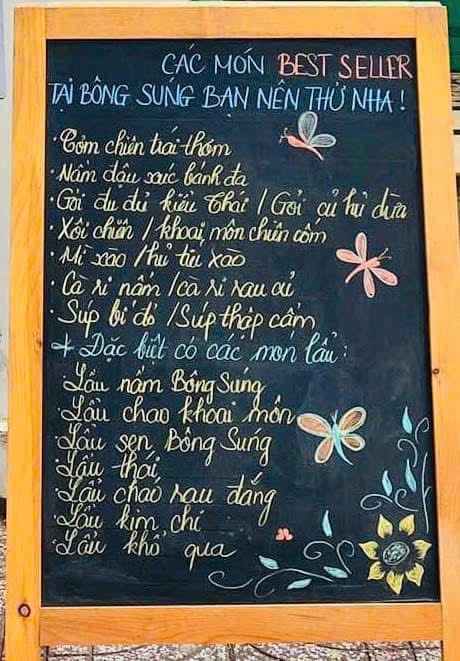 CÁC MÓN BEST SELLER
TẠI BÔNG SÚNG BẠN NÊN THỬ NHA !
· Cơm chiên trái thơm
· Nấm đậu xúc bánh đa
· Gỏi đu đủ kiểu Thái / Gỏi củ hủ dừa
· Xôi chiên / khoai môn chiên cốm
· Mì xào / hủ tiu xào
· Cà ri nấm / cà ri rau củ
· Súp bí đỏ / Súp thập cẩm
+ Đặc biệt có các món lẩu :
· Lẩu nấm Bông Súng
· Lẩu chao khoai môn
· Lẩu sen Bông Súng
· Lẩu thái
· Lẩu cháo rau đắng
· Lẩu kim chi
· Lẩu khổ qua